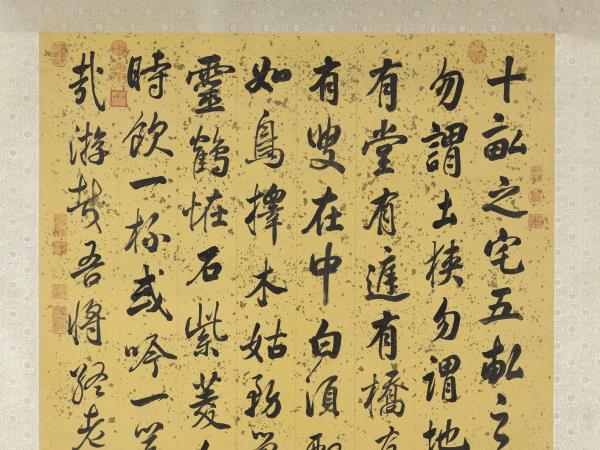 十畝之宅五畝之
勿謂土狹勿謂地
有堂有庭有橋有
有叟在中白須
如鳥擇木姑務
靈鶴恠石紫菱
時飲一杯或吟一
哉游哉吾將終老